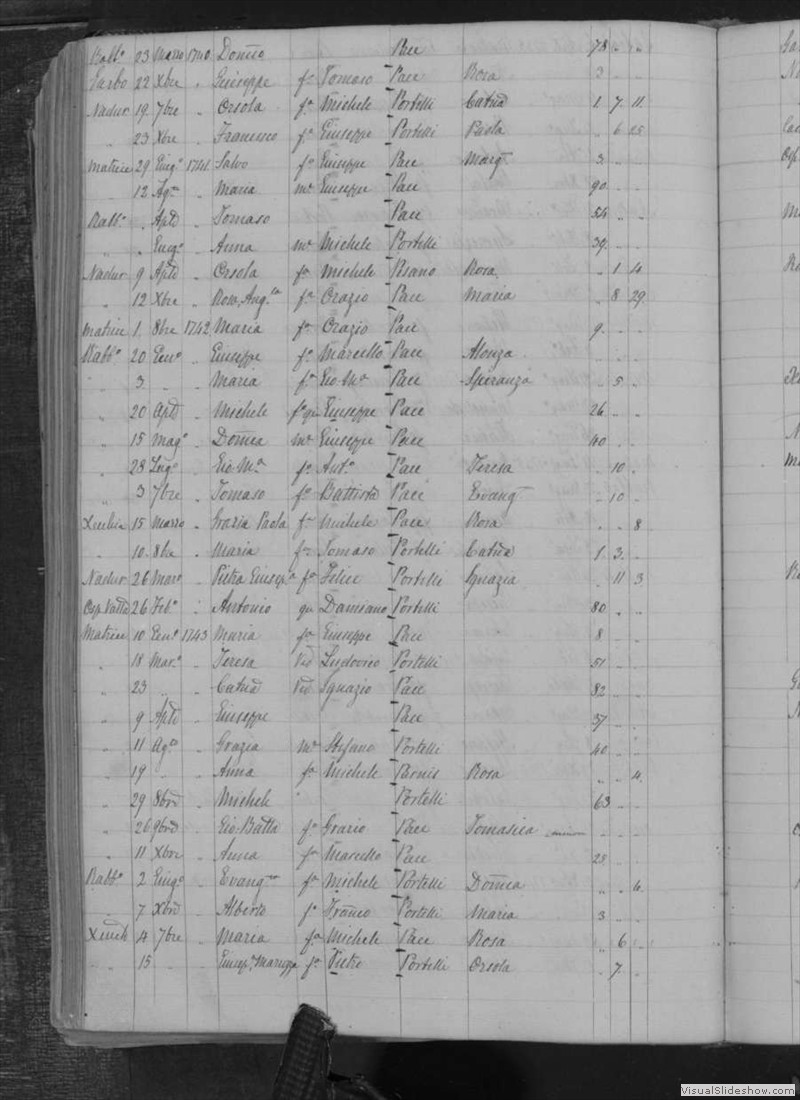 Rabto 23 Marzo 1740 Domco Pace 78 " "
Garbo 22 Xbre " Giuseppe fo Tomaso Pace Rosa 3 " "
Nadur 19 7bre " Orsola fa Michele Portelli Catna 1 7 11
" 23 Xbre " Francesco fo Giuseppe Portelli Paola " 6 25
Matrice 29 Giugo 1741 Salvo fo Giuseppe Pace Margta 3 " "
" 12 Ago " Maria me Giuseppe Pace 90 " "
Rabto " Aple " Tomaso Pace 54 " "
" " Giugo " Anna me Michele Portelli 39 " "
Nadur 9 Aple " Orsola fa Michele Rosa " 1 4
" 12 Xbre " fa Orazio Pace Maria " 8 29
Matrice 1 8bre 1742 Maria fa Orazio Pace 9 " "
Rabto 20 Geno " Giuseppe fo Marcello Pace Alonza " " "
" 3 " " Maria fa Gio Ma Pace Speranza " 5 "
" 20 Aple " Michele fo qm Giuseppe Pace 26 " "
" 15 Mago " Domca me Giuseppe Pace 40 " "
" 28 Lugo " Gio Ma fo Anto Pace Teresa " 10 "
" 3 7bre " Tomaso fo Battista Pace Evangta " 10 "
Xeuchia 15 Marzo " Grazia Paola fa Michele Pace Rosa " " 8
" 10 8bre " Maria fa Tomaso Portelli Catna 1 3 "
Nadur 26 Maro " Pietro Giusepe fo Felice Portelli Ignazia " 11 3
26 Febo " Antonio qm Damiano Portelli 80 " "
Matrice 10 Geno 1743 Maria fa Giuseppe Pace 8 " "
" 18 Maro " Teresa Ved Ludovico Portelli 51 " "
" 23 " " Catna Ved Ignazio Pace 82 " "
" 9 Aple " Giuseppe Pace 37 " "
" 11 Ago " Grazia me Stefano Portelli 40 " "
" 19 " " Anna fa Michele Rosa " " 4
" 29 8bre " Michele Portelli 63 " "
" 26 9bre " Gio Batta fo Pace " " "
" 11 Xbre " Anna fa Marcello Pace 28 " "
Rabto 2 Giugo " Evangta fa Michele Portelli Domca " " 4
" 7 Xbre " Alberto fo Franco Portelli Maria 3 " "
Xeuch 4 7bre " Maria fa Michele Pace Rosa " 6 "
" 15 Pietro Portelli Orsola " 7 "
VisualSlideshow.com